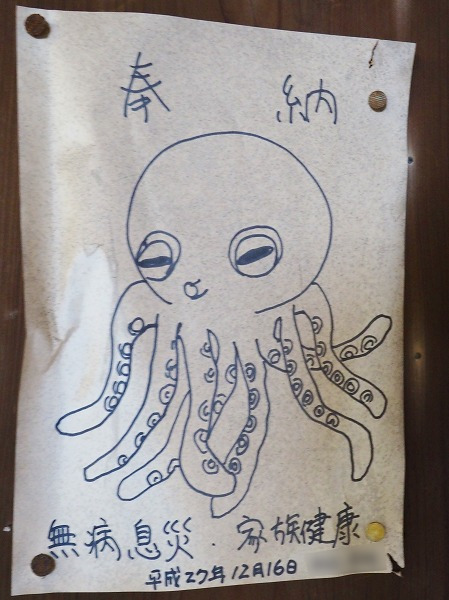 奉納
無病息災・家族健康
平成27年12月16日